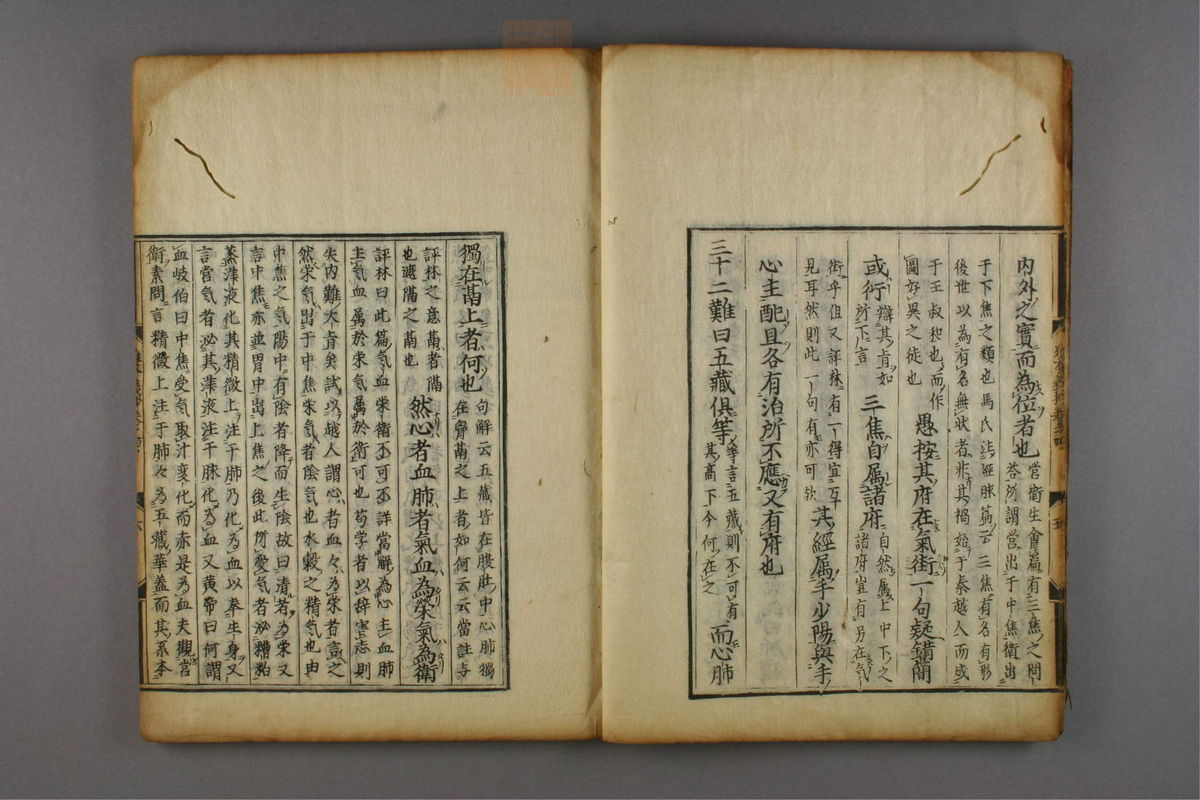 内外之實而為位者也營衛生會篇有三焦之問
答所謂營出于中焦衛出
于下焦之類也馬氏註經脉篇云三焦有名有形
後世以為有名無狀者非其禍始于秦越人而成
于王叔和也而作
圖好異之徒也 愚按其府在氣街一句疑錯簡
或衍辯其肯如
所下言 三焦自属諸府自然属上中下之
諸府豈有另在氣
街乎但又評林有一得宜互
見耳然則此一句有亦可欤 其經属手少陽與手
心主配且各有治所不應又有府也
三十二難曰五藏俱等等言五藏則不可有
其高下今何在之 而心肺
獨在膈上者何也句解云五藏皆在腹肚中心肺獨
在脅膈之上者如何云云當註与
評林之意膈者隔
也遮隔之膈也 然心者血肺者氣血為榮氣為衛
評林曰此篇氣血榮衛不可不詳當解為心主血肺
主氣血属於榮氣属於衛可也苟学者以辞害志則
失内難大肯矣試以越人謂心者血々為栄者言之
然栄氣出于中焦栄氣者陰氣也水穀之精氣也由
中焦之氣陽中有陰者降而生陰故曰清者為栄又
言中焦亦並胃中出上焦之後此所受氣者泌糟粕
蒸津液化其精微上注于肺乃化為血以奉生身又
言営氣者泌其津液注于脉化為血又黄帝曰何謂
血岐伯曰中焦受氣取汁変化而赤是為血夫觀営
衛素問言精微上注于肺々為五藏華盖而其系本